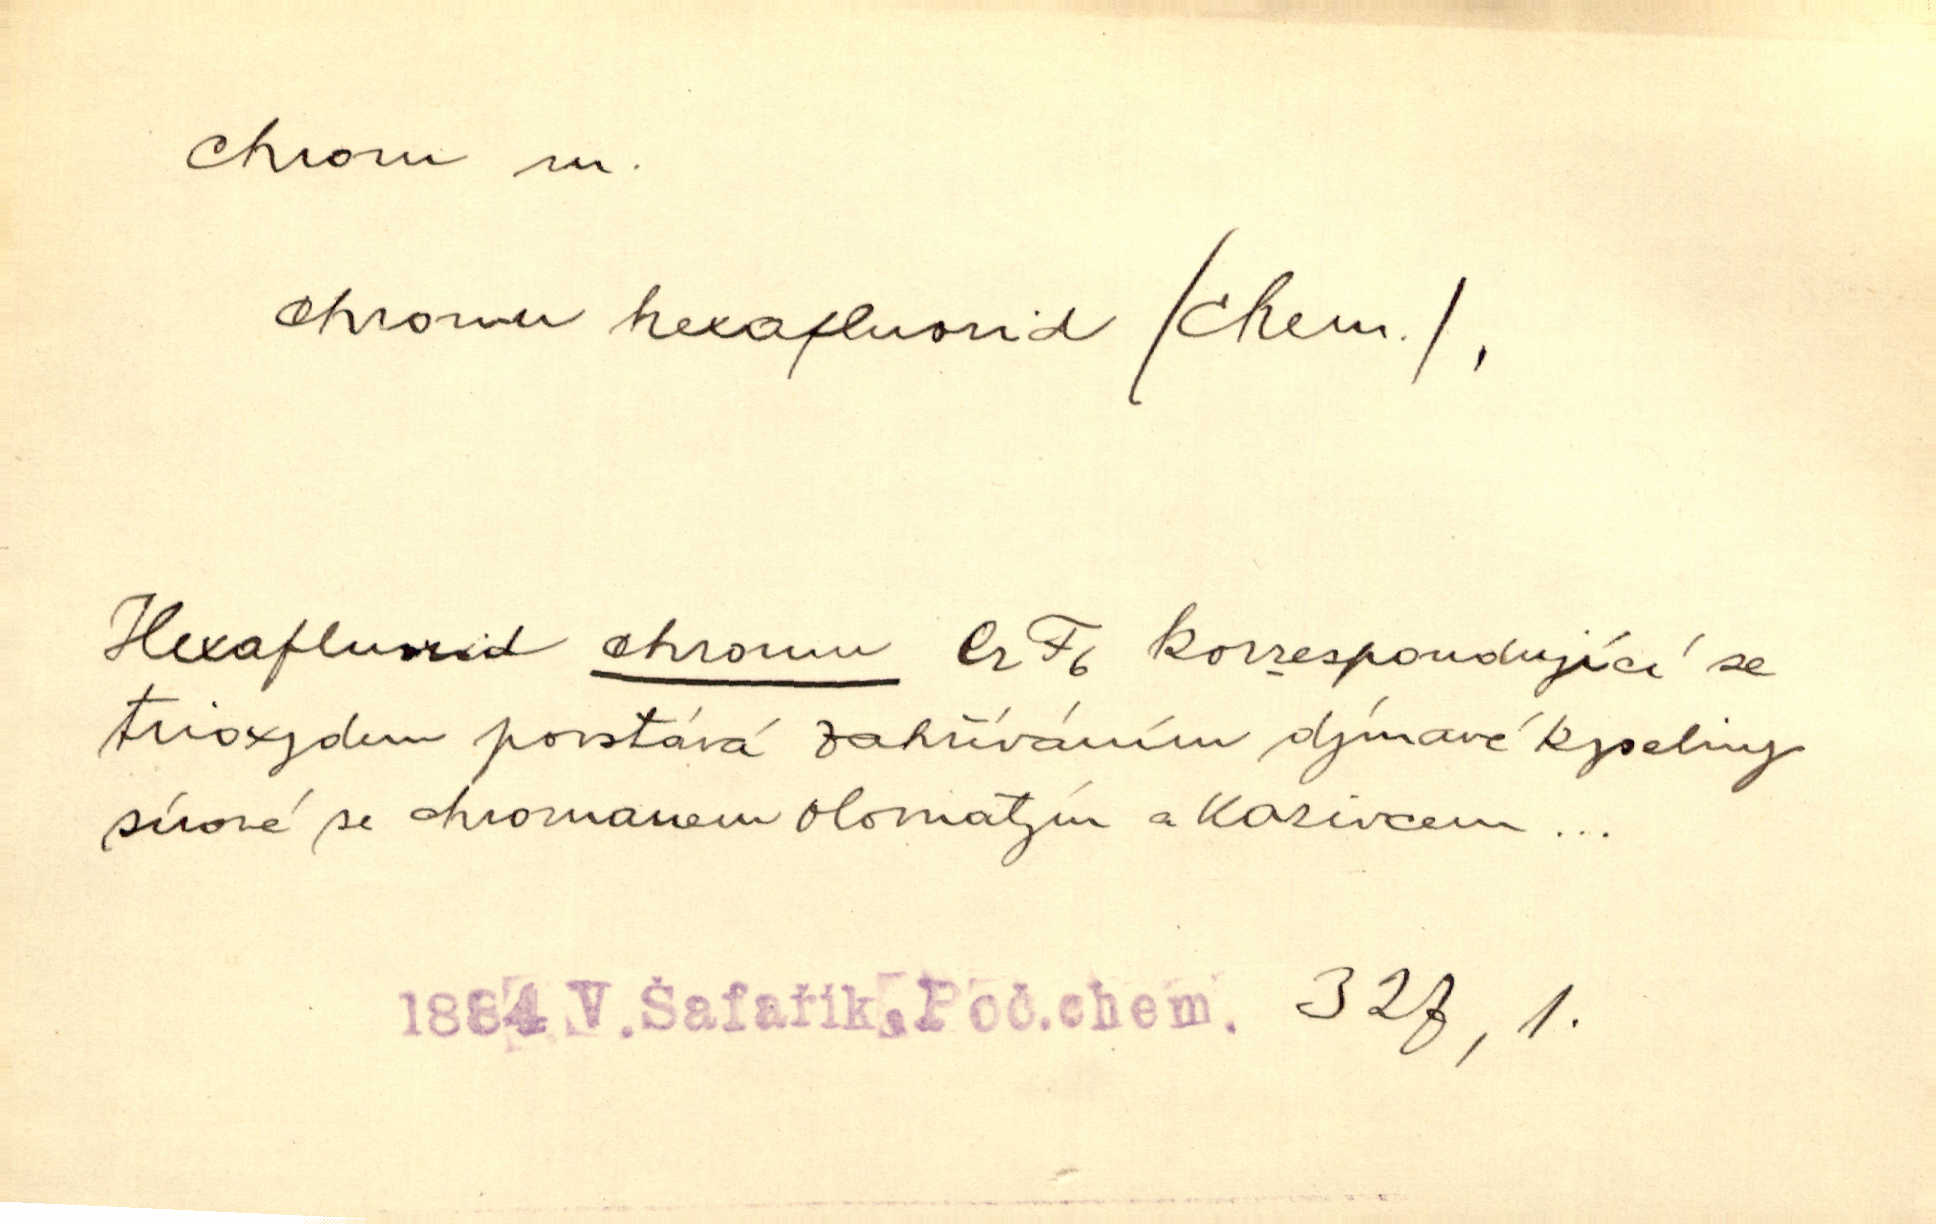 chrom m.
chromu hexafluorid /chem./,
Hexafluorid chromu CrF6 korrespondující se
trioxydem povstává zahříváním dýmavé kyseliny
sírové se chromanem olovnatým a kazivcem ...
1884 V. Šafařík. Poč.chem. 327, 1.